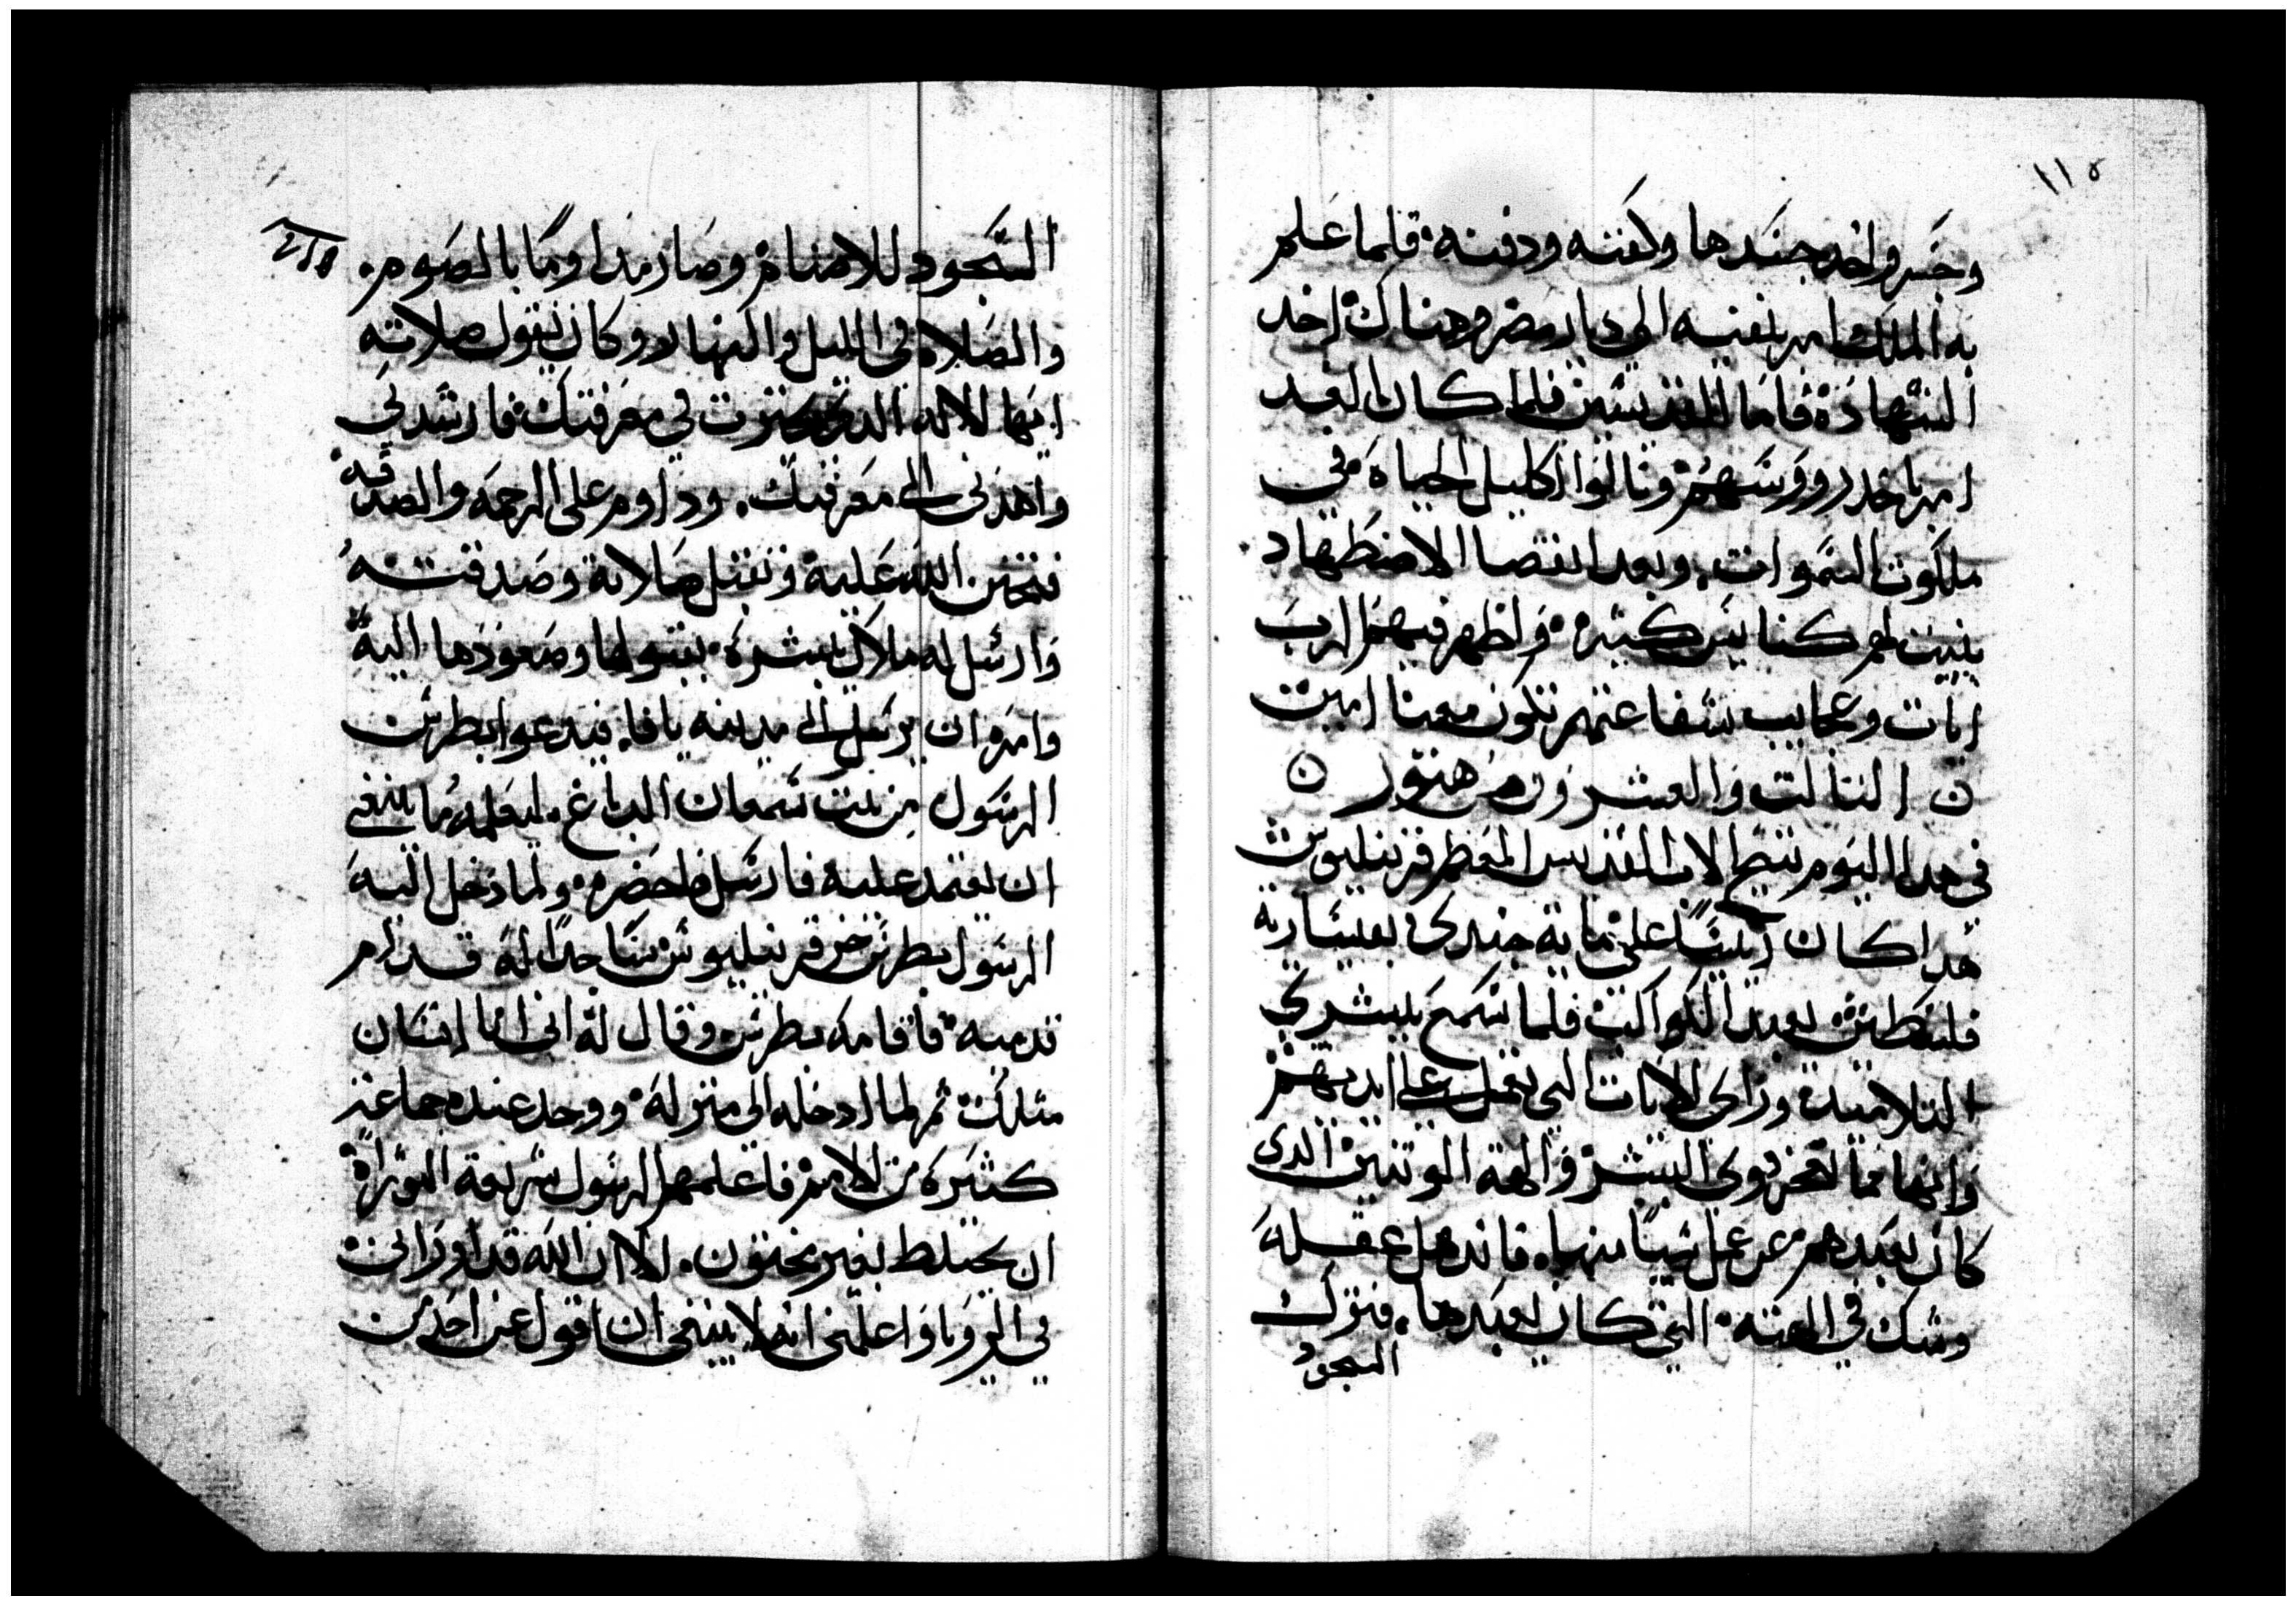 ١١٥
وجسر واخد جسدها وكفنه ودفنه فلما علم
به الملك امر بنفيه الى ديار مصر وهناك اخد
الشهادة فاما القديسين فلما كان الغد
امر باخد رووسهم ونالوا اكليل الحياة في
ملكوت السموات. وبعد انقضا الاضطهاد
بنيت لهم كنايس كثيرة واظهر فيهم الرب
ايات وعجايب شفاعتهم تكون معنا امين
التالت والعشرون من هتور
في هدا اليوم تنيح الاب القديس المعظم قرنيليوس
هدا كان رييسًا على ماية جندي بقيسارية
فلسطين يعبد الكواكب فلما سمع ببشري
التلاميد وراى الايات التي تعمل على ايديهم
وانها مما تعجز قوى البشر والهة الوتنين الدى
كان يعبدهم عن عمل شيًا منها. فاندهل عقله
وشك في الهته التي كان يعبدها. فترك
السجود
السجود للاصنام وصار مداومًا بالصوم.
والصلاه في الليل والنهار وكان يقول صلاته
ايها الاله الدى تحيرت في معرفتك فارشدني
واهدنى الى معرفتك. وداوم على الرحمه والصدقه
فتحنن الله عليه وتقبل صلاته وصدقته
وارسل له ملاك يبشره بقبولها وصعودها اليه
وامره ان يرسل الى مدينه يافا. فيدعوا بطرس
الرسول من بيت سمعان الدباغ. ليعلمه ما ينبغي
ان يعتمد عليه فارسل واحضره ولما دخل اليه
الرسول بطرس خر قرنيليوس ساجدًا له قدام
قدميه فاقامه بطرس وقال له انى انا انسان
مثلك ثم لما ادخله الى منزله ووجد عنده جماعة
كثيرة من الامم فاعلمهم الرسول شريعة التوراة
ان يختلط بغير مختون. الا ان الله قد اورانى
في الرويا واعلمنى انه لا ينبغى ان اقول عن احد من